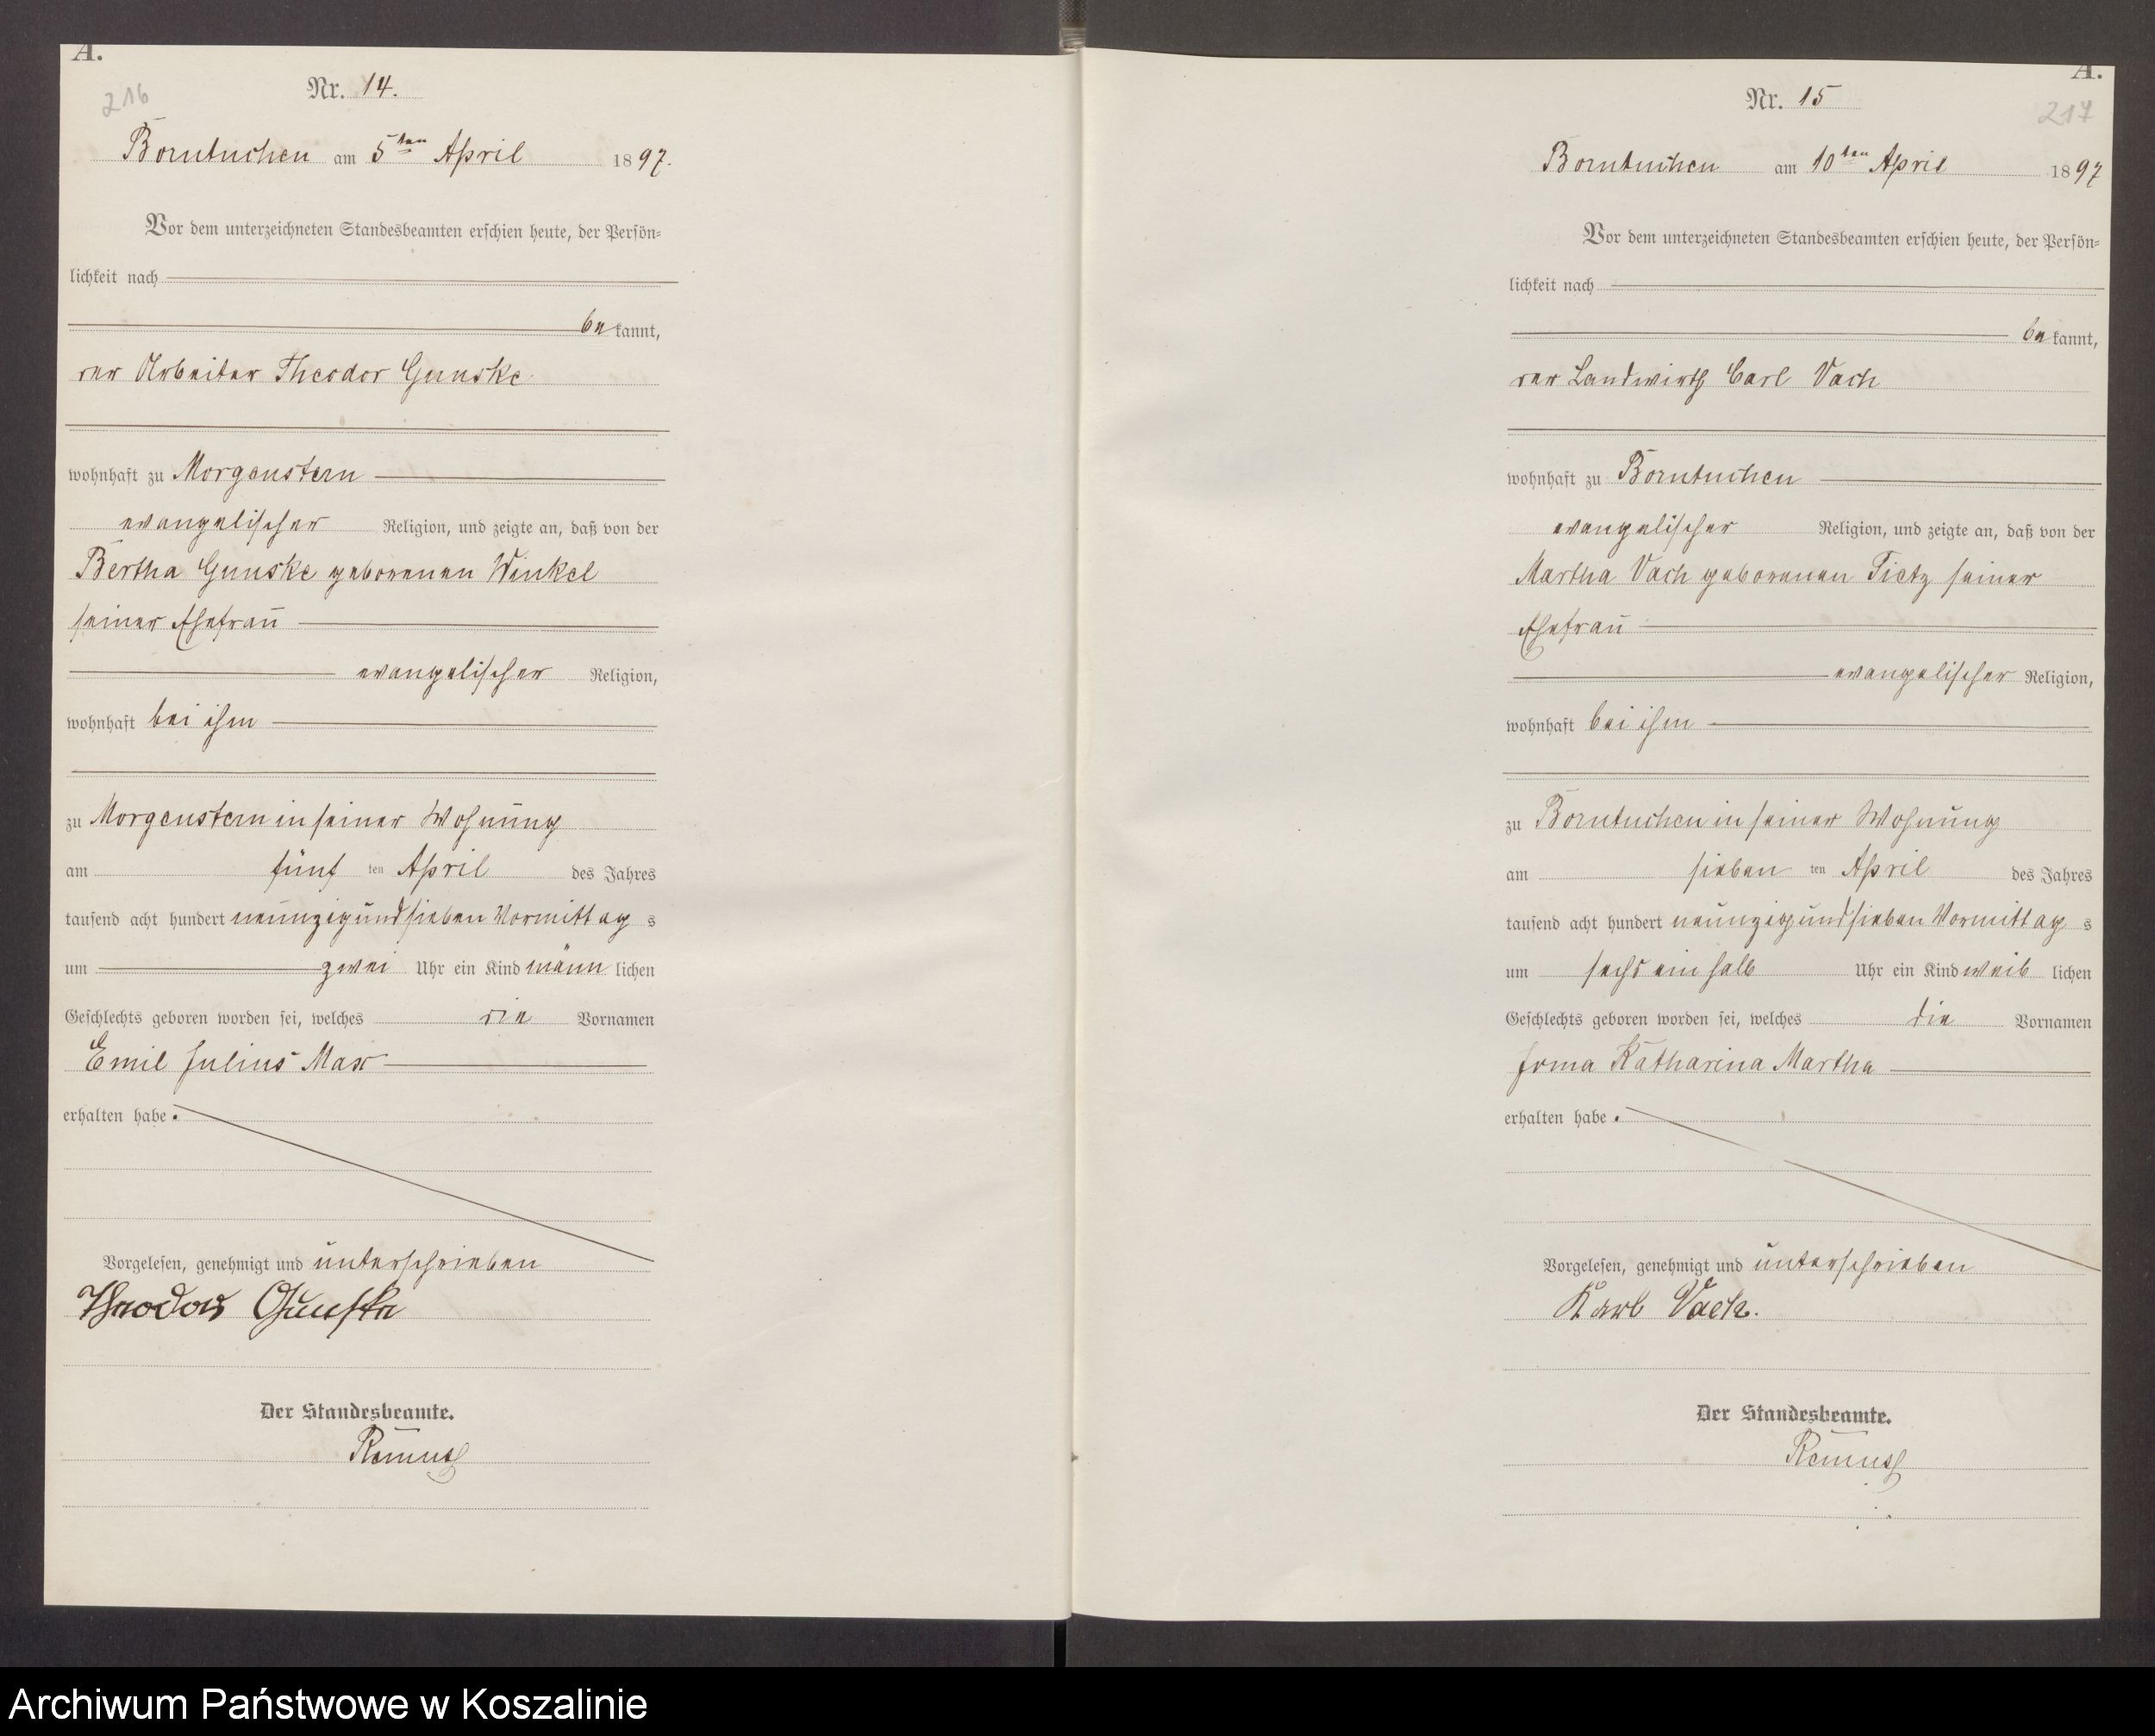 A.
216
Nr. 14.
Borntuchen am 5ten April 1897.
Vor dem unterzeichneten Standesbeamten erschien heute, der Persön=
lichkeit nach
be kannt,
der Arbeiter Theodor Gunske
wohnhaft zu Morgenstern
evangelischer Religion, und zeigte an, daß von der
Bertha Gunske geborenen Winkel
seiner Ehefrau
evangelischer Religion,
wohnhaft bei ihm
zu Morgenstern in seiner Wohnung
am fünf ten April des Jahres
tausend acht hundert neunzig und sieben Vormittag s
um zwei Uhr ein Kind männ lichen
Geschlechts geboren worden sei, welches die Vornamen
Emil Julius Max
erhalten habe.
Vorgelesen, genehmigt und unterschrieben
Theodor Gunske
Der Standesbeamte.
Remus
A.
217
Nr. 15
Borntuchen am 10ten April 1897
Vor dem unterzeichneten Standesbeamten erschien heute, der Persön=
lichkeit nach
be kannt,
der Landwirth Carl Vach
wohnhaft zu Borntuchen
evangelischer Religion, und zeigte an, daß von der
Martha Vach geborenen Tietz seiner
Ehefrau
evangelischer Religion,
wohnhaft bei ihm
zu Borntuchen in seiner Wohnung
am sieben ten April des Jahres
tausend acht hundert neunzig und sieben Vormittag s
um sechs ein halb Uhr ein Kind weib lichen
Geschlechts geboren worden sei, welches die Vornamen
Irma Katharina Martha
erhalten habe.
Vorgelesen, genehmigt und unterschrieben
Karl Vach.
Der Standesbeamte.
Remus
Archiwum Państwowe w Koszalinie